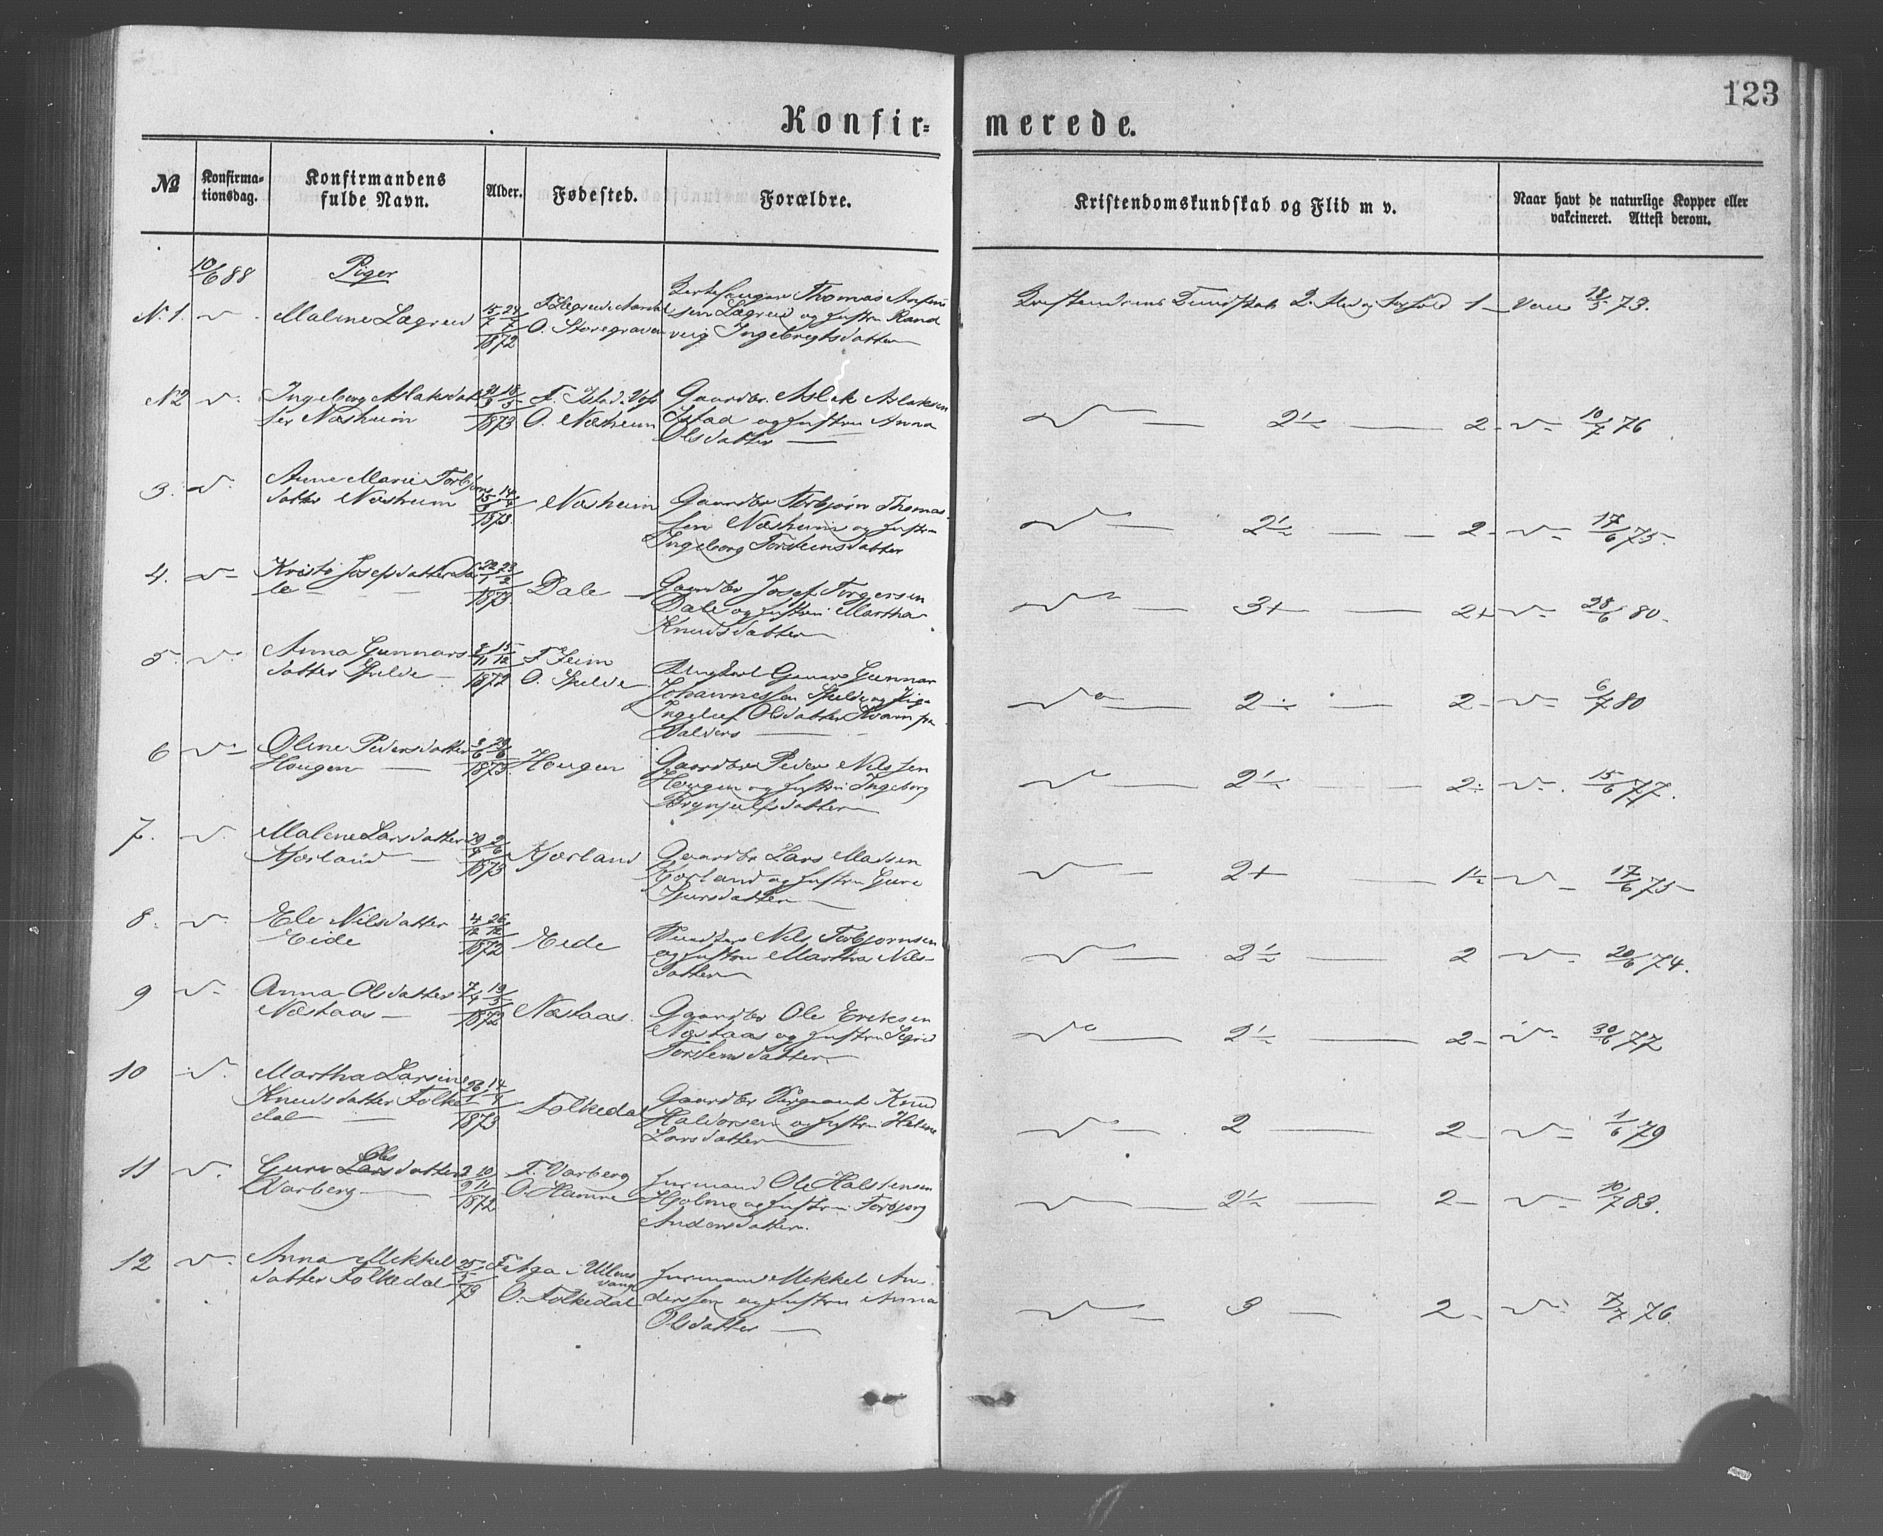 123
Konfir=
merede.
№
Konfirma-
tionsdag.
Konfirmandens
fulde Navn.
Alder.
Fødested.
Forældre.
Kristendomskundskab og Flid m v.
Naar havt de naturlige Kopper eller
vakcineret. Attest derom.
10/6 88
Piger
N. 1.
Malene Lægreid
15/7 27/7
1872
O. Storegraven
Thomas
sen Lægreid og Hustru Rand
veig Ingebrigtsdatter
Kundskab 2. 1 Vac 73.
N 2
Ingeborg Aslaksdat
ter Næsheim
1873
F. Istad. Voss
O. Næsheim
Gaardbr. Aslak Aslaksen
Istad og Hustru Anna
Olsdatter
2½ 2 10/7 76
3.
Anne Marie Torbjørns
datter Næsheim
1873
Næsheim
Gaardbr Torbjørn Thomas
sen Næsheim og Hustru
Ingeborg Torsteinsdatter
2½ 2 17/6 75.
4.
Kristi Josefsdatter Da
le
22/1 23/2
1873
Dale
Gaardbr Josef Torgersen
Dale og Hustru Martha
Knudsdatter
3+ 2+ 28/6 80.
5.
Anna Gunnars
datter Spilde
15/12
1872
F. Seim
O. Spilde
Ungkarl Gunnar
Johannessen Spilde og Pige
Olsdatter Kvam fra
Valders
2 2 6/7 80
6
Oline Pedersdatter
Hougen
1873
Hougen
Gaardbr Peder Nilssen
Hougen og Hustru Ingeborg
Brynjulfsdatter
2½ 2 15/6 77.
7.
Malene Larsdatter
Kjærland
1873
Kjærland
Gaardbr Lars Madsen
Kjærland og Hustru Guro
Sjursdatter
2+ 1½ 17/6 75
8.
Eli Nilsdatter
Eide
4/12 26/12
1872
Eide
Nils Torbjørnsen
og Hustru Martha Nils-
datter
2½ 2 20/6 74.
9
Anna Olsdatter
Næstaas
7/4 19/5
1872
Næstaas.
Gaardbr Ole Eriksen
Næstaas og Hustru Sigrid
Torstensdatter
2½ 2 30/6 77
10
Martha Larsine
Knudsdatter Folke
dal
26/1 14/4
1873
Folkedal
Gaardbr Sergeant Knud
Haldorsen og Hustru Helene
Larsdatter
2 2 1/6 79
11
Ols
Guri Larsdatter
Varberg
2/9 10/11
1872
F. Varberg
O. Hamre
Huusmand Ole Halstensen
Hjelmo og Hustru Torbjørg
Andersdatter.
2½ 2 10/7 83.
12
Anna Mikkels
datter Folkedal
25/5
73
F. Aga i Ullens
vang
O. Folkedal
Huusmand Mikkel An
derssen og Hustru Anna
Olsdatter
3 2 7/7 76.